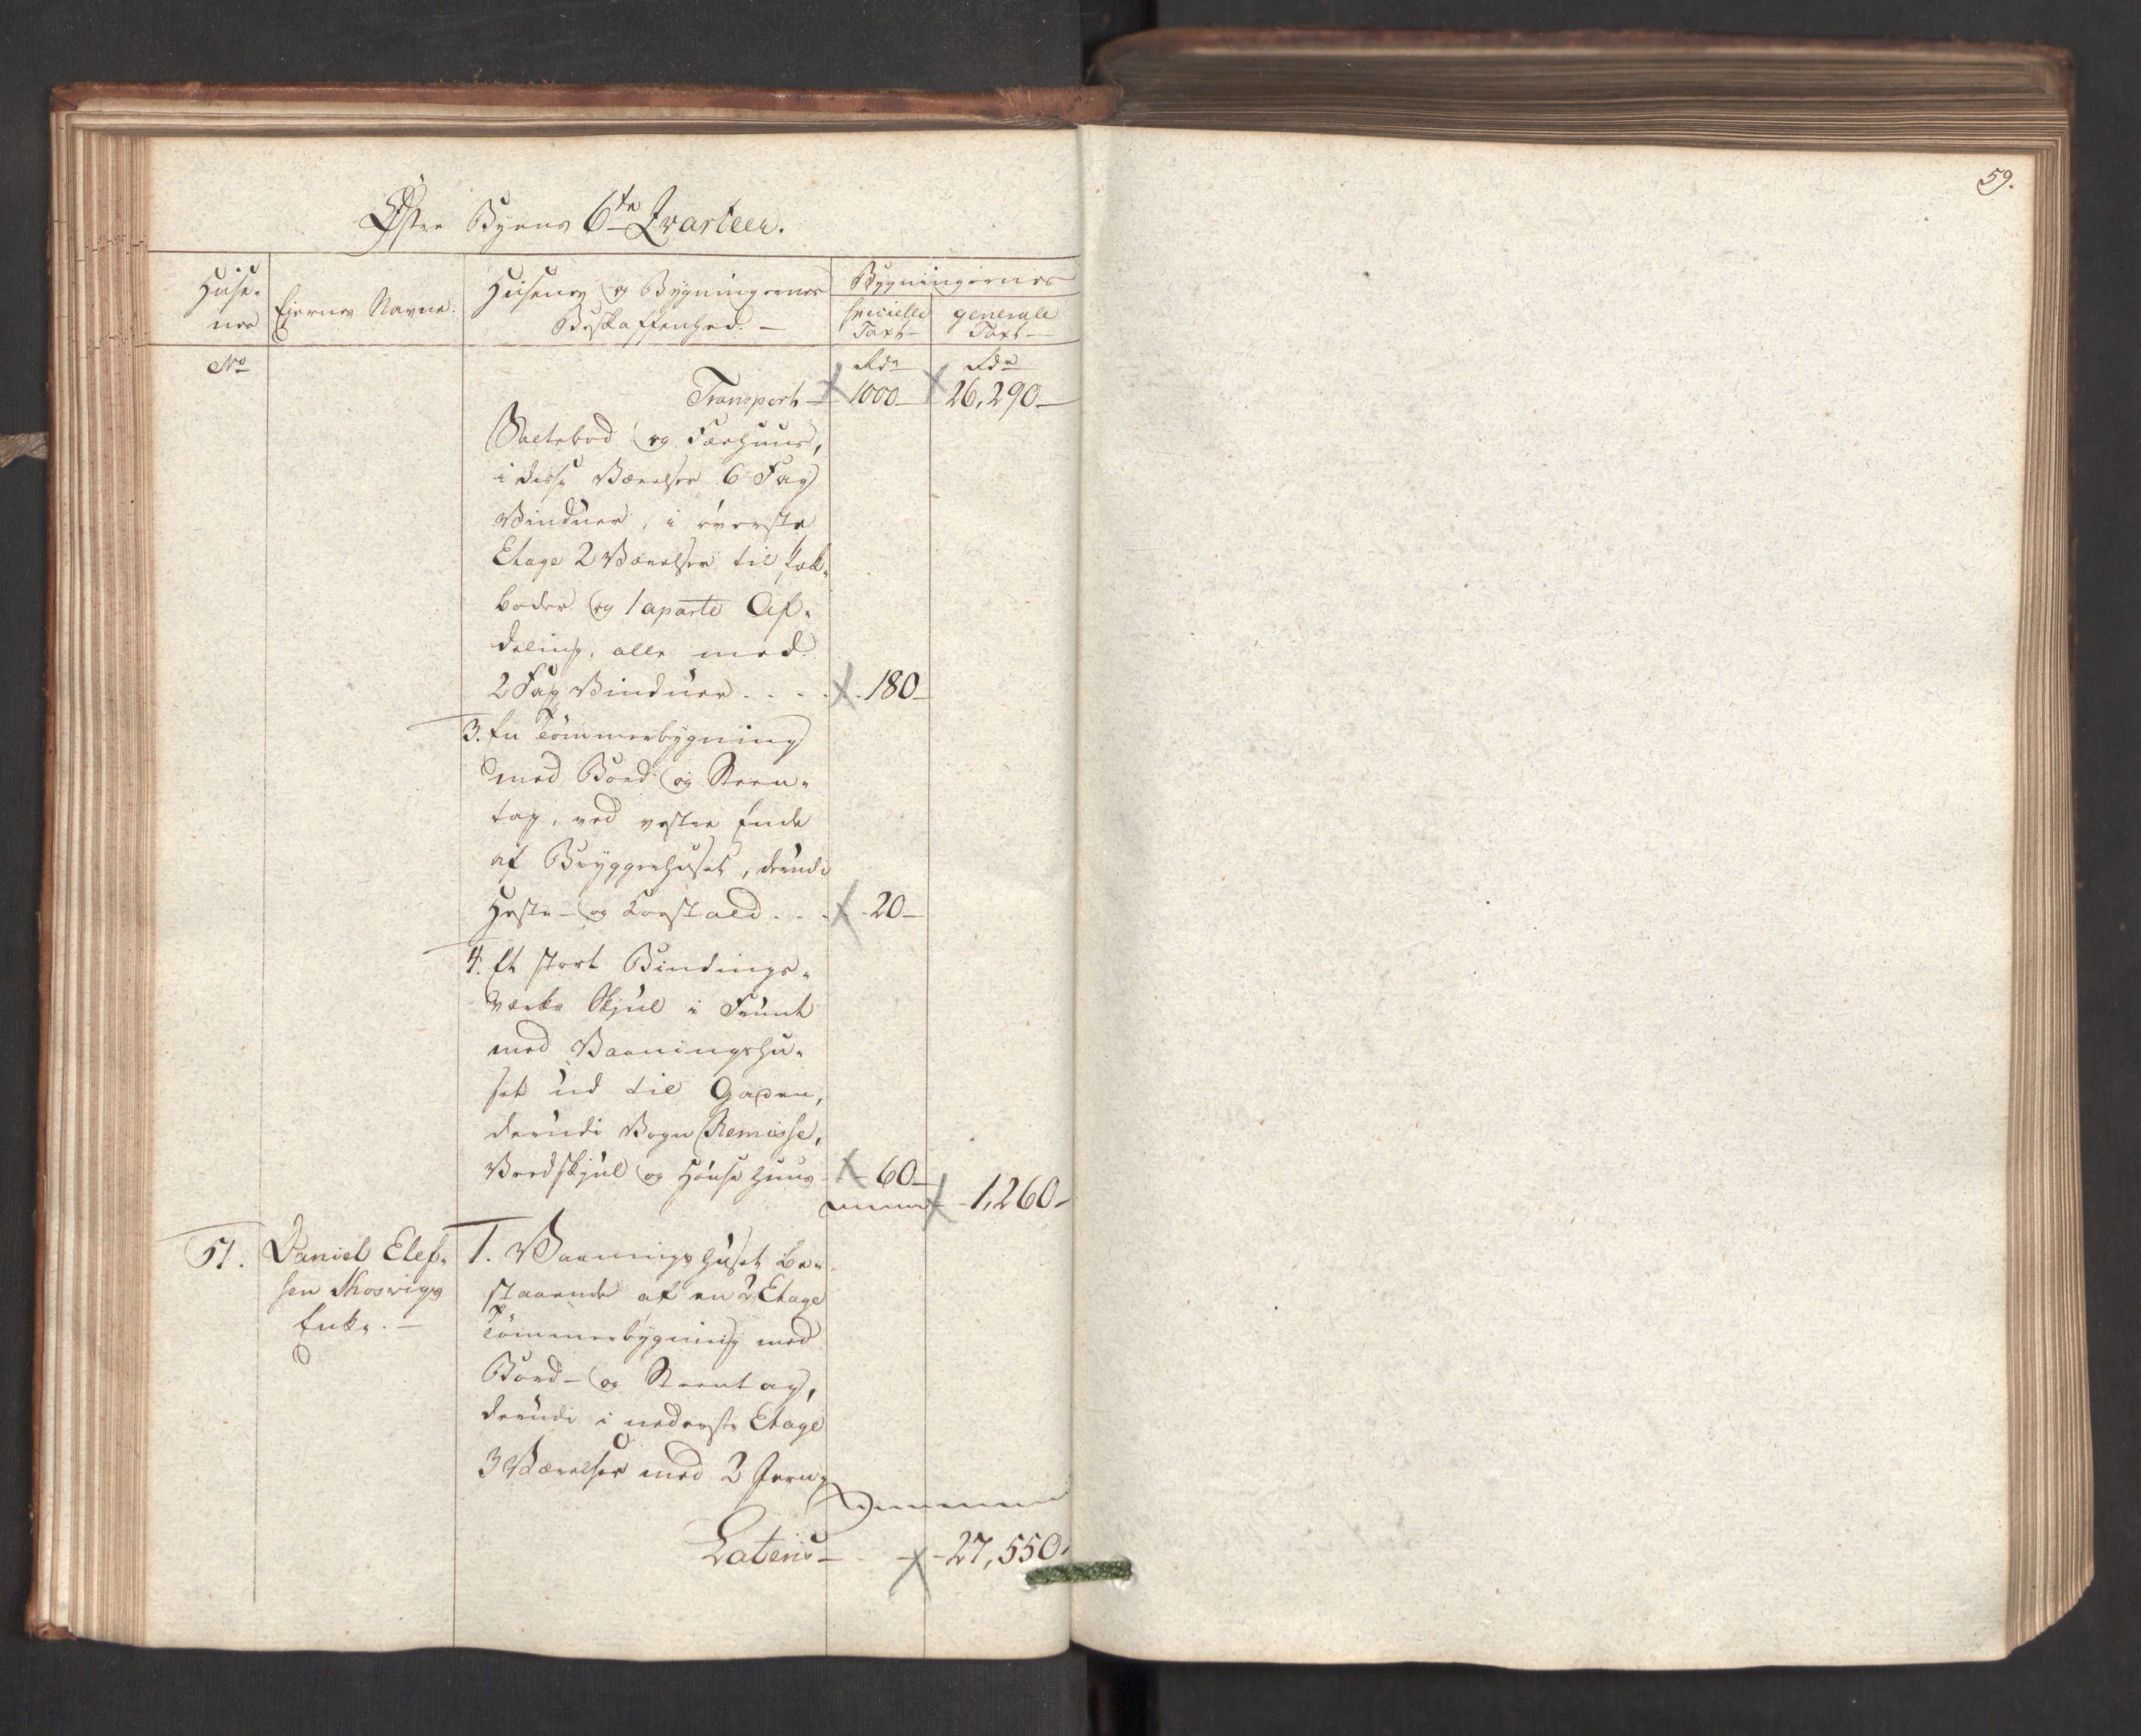 59.
Østre Byens 6te Qvarteer.
Huse-
nes
Ejernes Navne.
Husenes og Bygningernes
Beskaffenhed. —
Bygningernes
specielle
Taxt —
generale
Taxt —
No
Rdr
Rdr
Transport — 1000 — 26,290 —
og Færhuus,
i disse Værelser 6 Fag
Vinduer, i øverste
Etage 2 Værelser til Pak-
boder og 1 aparte Af-
deling, alle med
2 Fag Vinduer . . . . 180 —
3. En Tømmerbygning
med Bord og Steen-
tag, ved vestre Ende
af Bryggerhuset, derudi
Heste- og Koestald . . . 20 —
4. Et stort Bindings-
værks Skjul i Frunt
med Vaaningshu-
set ud til Gaden,
derudi Vogn Remisse,
Vedskjul og Hønsehuus — 60 —
1,260 —
51. Daniel Elef-
sen Kosvigs
Enke. —
1. Vaaningshuset be-
staaende af en 2 Etage
Tømmerbygning med
Bord- og Steentag,
derudi i nederste Etage
3 Værelser med 2 Jern-
Lateris — 27,550 —